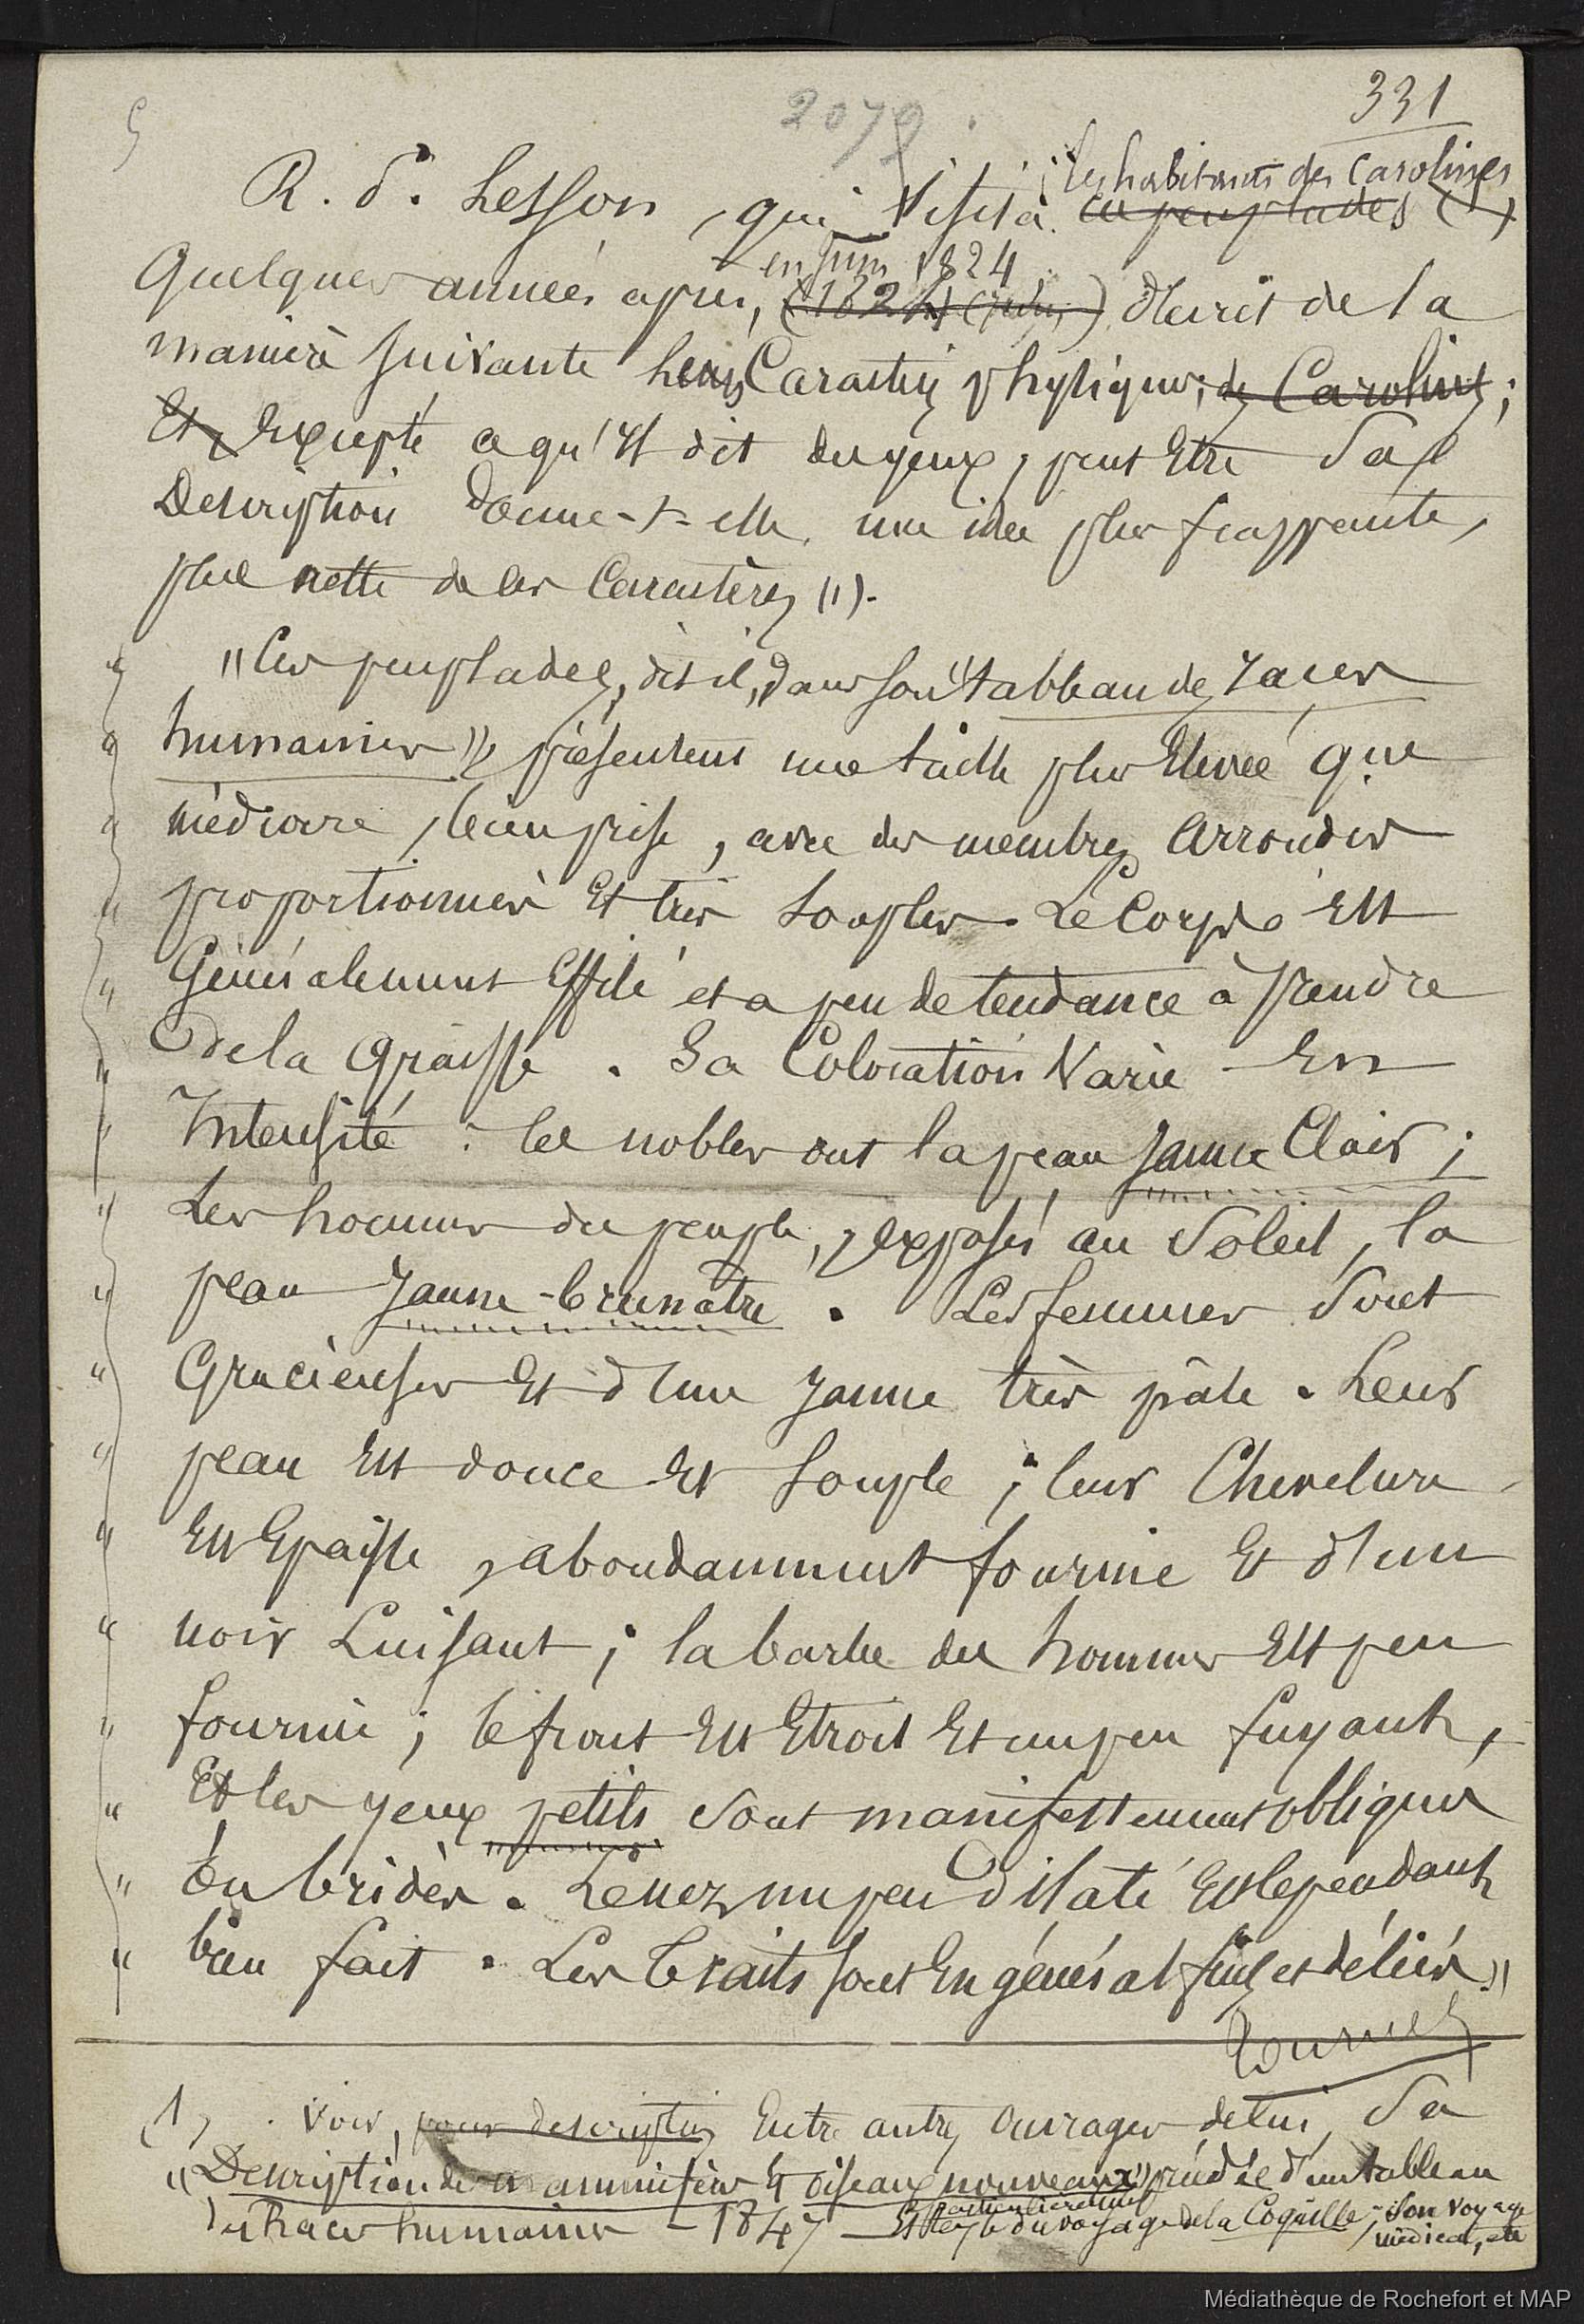 331
2079
les habitants des Carolines
R. P. Lesson, qui visita ces peuplades (1)
en Juin 1824
quelques années après, (1824) décrit de la
manière suivante leurs Caractères physiques; des Carolins;
Et, Excepté ce qu'il dit des yeux, peut Etre Sa
Description donne-t-elle une idée plus frappante,
plus nette de ces Caractères (1).
"Ces peuplades, dit-il, dans son "tableau des races
humaines", présentent une taille plus Elevée que
médiocre, bien prise, avec des membres arrondis
proportionnés Et très souples. Le Corps Est
Généralement Effilé et a peu de tendance à prendre
de la graisse. Sa Coloration Varie En
Intensité : les nobles ont la peau jaune Clair ;
Les hommes du peuple, exposés au Soleil, la
peau Jaune-brunâtre. Les femmes Sont
Gracieuses Et d'une jaune très pâle. Leur
peau Est douce Et souple ; leur Chevelure
Est Epaisse, abondamment fournie Et d'un
noir Luisant ; la barbe des hommes Est peu
fournie ; le front Est Etroit Et un peu fuyant,
Et les yeux petits sont manifestement obliques
ou bridés. Le nez un peu dilaté Est cependant
bien fait. Les traits sont En général fins et déliés."
tournez
(1) Voir, pour description Entre autres Ouvrages de lui, Sa
"Description de mammifères Et oiseaux nouveaux" précédée d'un tableau
des Races humaines - 1847 - Et particulièrement le voyage de la Coquille ; Son Voyage
médical, etc
Médiathèque de Rochefort et MAP